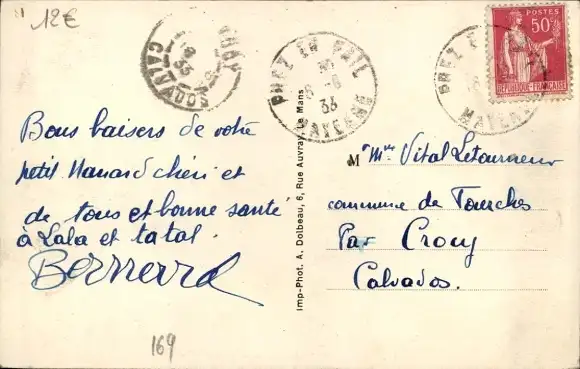 12€
CALVADOS
PREZ EN PAIL
35
MAYENNE
MAYENNE
POSTES
50c
REPUBLIQUE FRANÇAISE
Bons baisers de votre
petit Nanard chéri et
de tous et bonne santé
à Lala et tatal.
Bernard
169
Imp-Phot. A. Dolbeau, 6, Rue Auvray, Le Mans
M Mme Vital Letourneur
commune de Tourches
Par Crouy
Calvados.